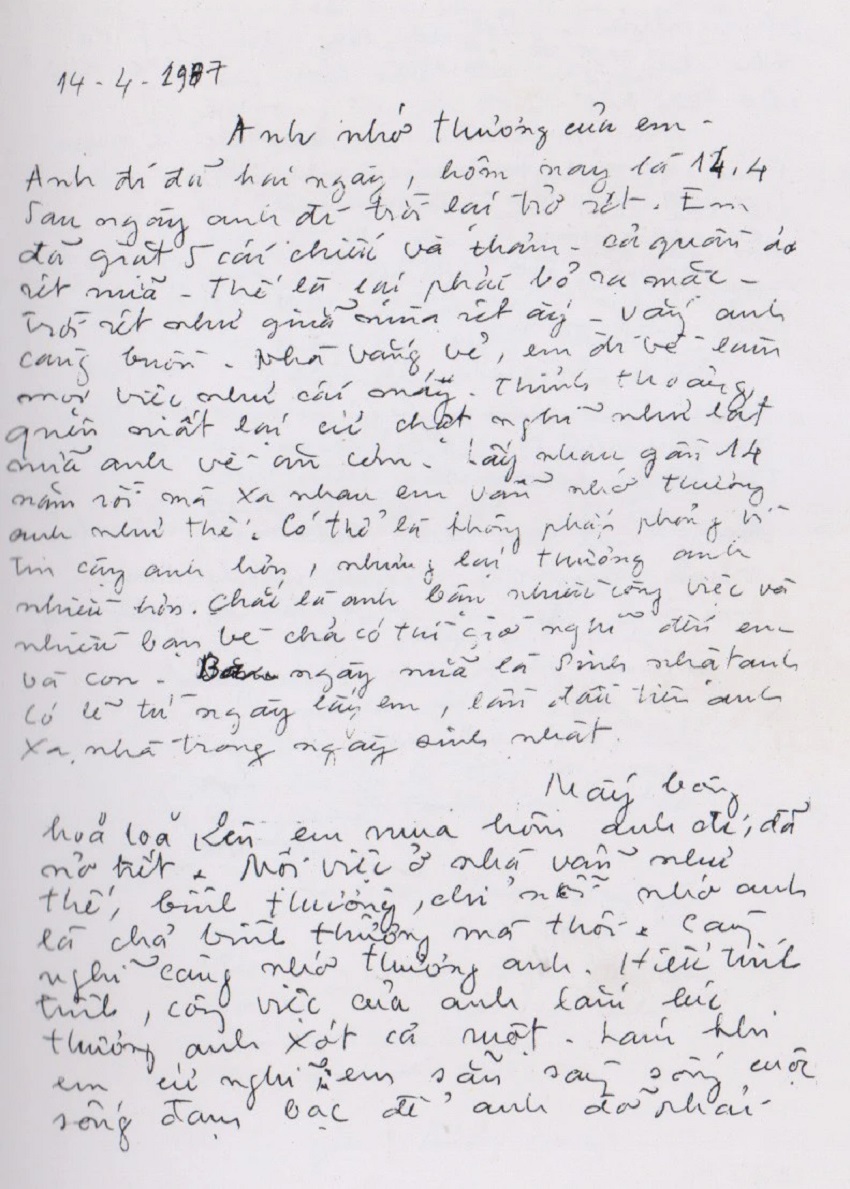 14-4-1987
Anh nhớ thương của em -
Anh đi đã hai ngày, hôm nay là 14.4
Sau ngày anh đi trời lại trở rét. Em
đã giặt 5 cái chiếu và thảm - cả quần áo
rét nữa - Thế là lại phải bỏ ra mặc -
Trời rét như giữa mùa rét ấy - Vắng anh
càng buồn. Nhà vắng vẻ, em đi về làm
mọi việc như cái máy. Thỉnh thoảng,
quên mất lại cứ chợt nghĩ như lát
nữa anh về ăn cơm. Lấy nhau gần 14
năm rồi mà xa nhau em vẫn nhớ thương
anh như thế. Có thể là không phấp phỏng vì
tin cậy anh hơn, nhưng lại thương anh
nhiều hơn. Chắc là anh bận nhiều công việc và
nhiều bạn bè chả có thì giờ nghĩ đến em
và con - ngày nữa là sinh nhật anh
Có lẽ từ ngày lấy em, lần đầu tiên anh
xa nhà trong ngày sinh nhật.
Mấy bông
hoả loa kèn em mua hôm anh đi, đã
nở hết. Mọi việc ở nhà vẫn như
thế, bình thường, chỉ nỗi nhớ anh
là chả bình thường mà thôi. Càng
nghĩ càng nhớ thương anh. Hiểu tính
tình, công việc của anh lắm lúc
thương anh xót cả ruột. Lắm khi
em cứ nghĩ em sẵn sàng sống cuộc
sống đạm bạc để anh đỡ phải